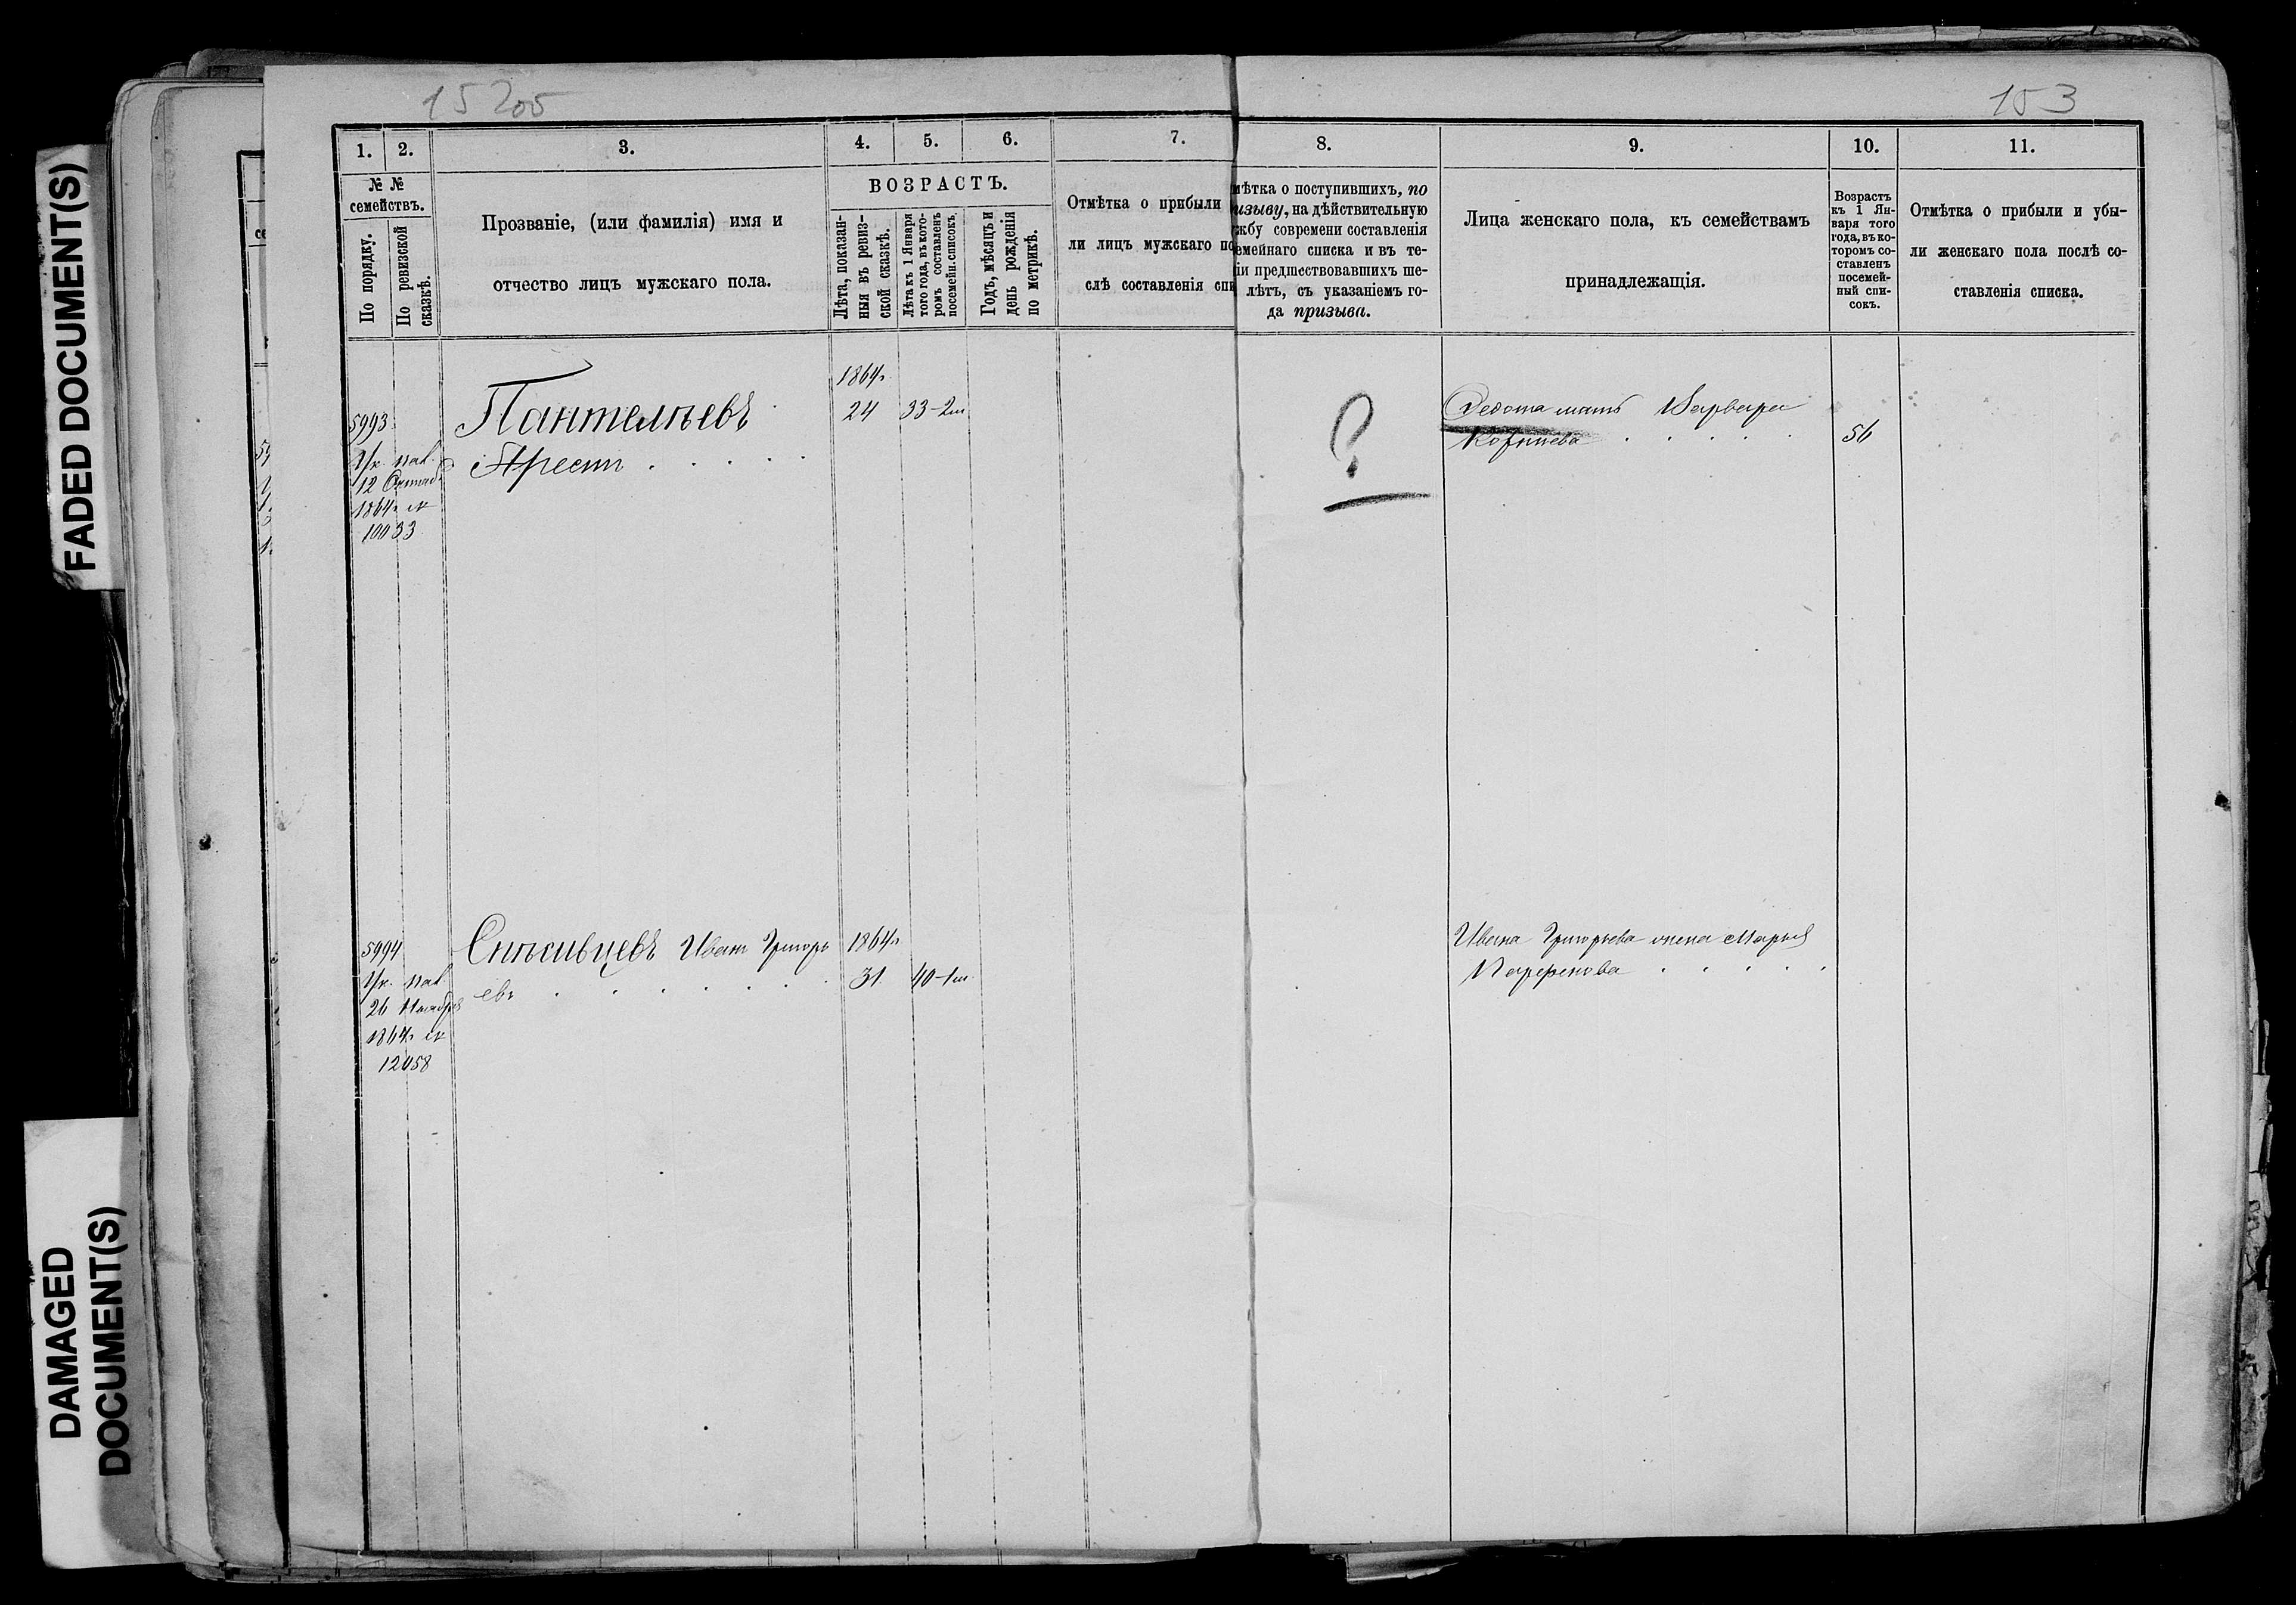 FADED DOCUMENT(S)
DAMAGED
DOCUMENT(S)
15205
153
1.
2.
3.
4.
5.
6.
7.
8.
9.
10.
11.
№ №
семействъ.
По порядку.
По ревизской
сказкѣ.
Прозваніе, (или фамилія) имя и
отчество лицъ мужскаго пола.
ВОЗРАСТЪ.
Лѣта, показан-
ныя въ ревиз-
ской сказкѣ.
Лѣта къ 1 Января
того года, въ кото-
ромъ составленъ
посемейн. списокъ.
Годъ, мѣсяцъ и
день рожденія
по метрикѣ.
Отмѣтка о прибыли
ли лицъ мужскаго по
слѣ составленія спи
мѣтка о поступившихъ, по
изыву, на дѣйствительную
жбу современи составленія
емейнаго списка и въ те-
іи предшествовавшихъ ше-
лѣтъ, съ указаніемъ го-
да призыва.
Лица женскаго пола, къ семействамъ
принадлежащія.
Возрастъ
къ 1 Ян-
варя того
года, въ ко-
торомъ со-
ставленъ
посемей-
ный спи-
сокъ.
Отмѣтка о прибыли и убы-
ли женскаго пола послѣ со-
ставленія списка.
5993
Ук. пал.
12
1864г. №
10033
Пантелѣевъ
1864г.
24
33-2м
?
мать Варвара
56
5994
Ук. пал.
26 Ноября
1864г. №
12058
Спѣсивцевъ Иванъ Григорь
евъ
1864г.
31
40-1м
Ивана Григорьева жена Марья
Парфенова